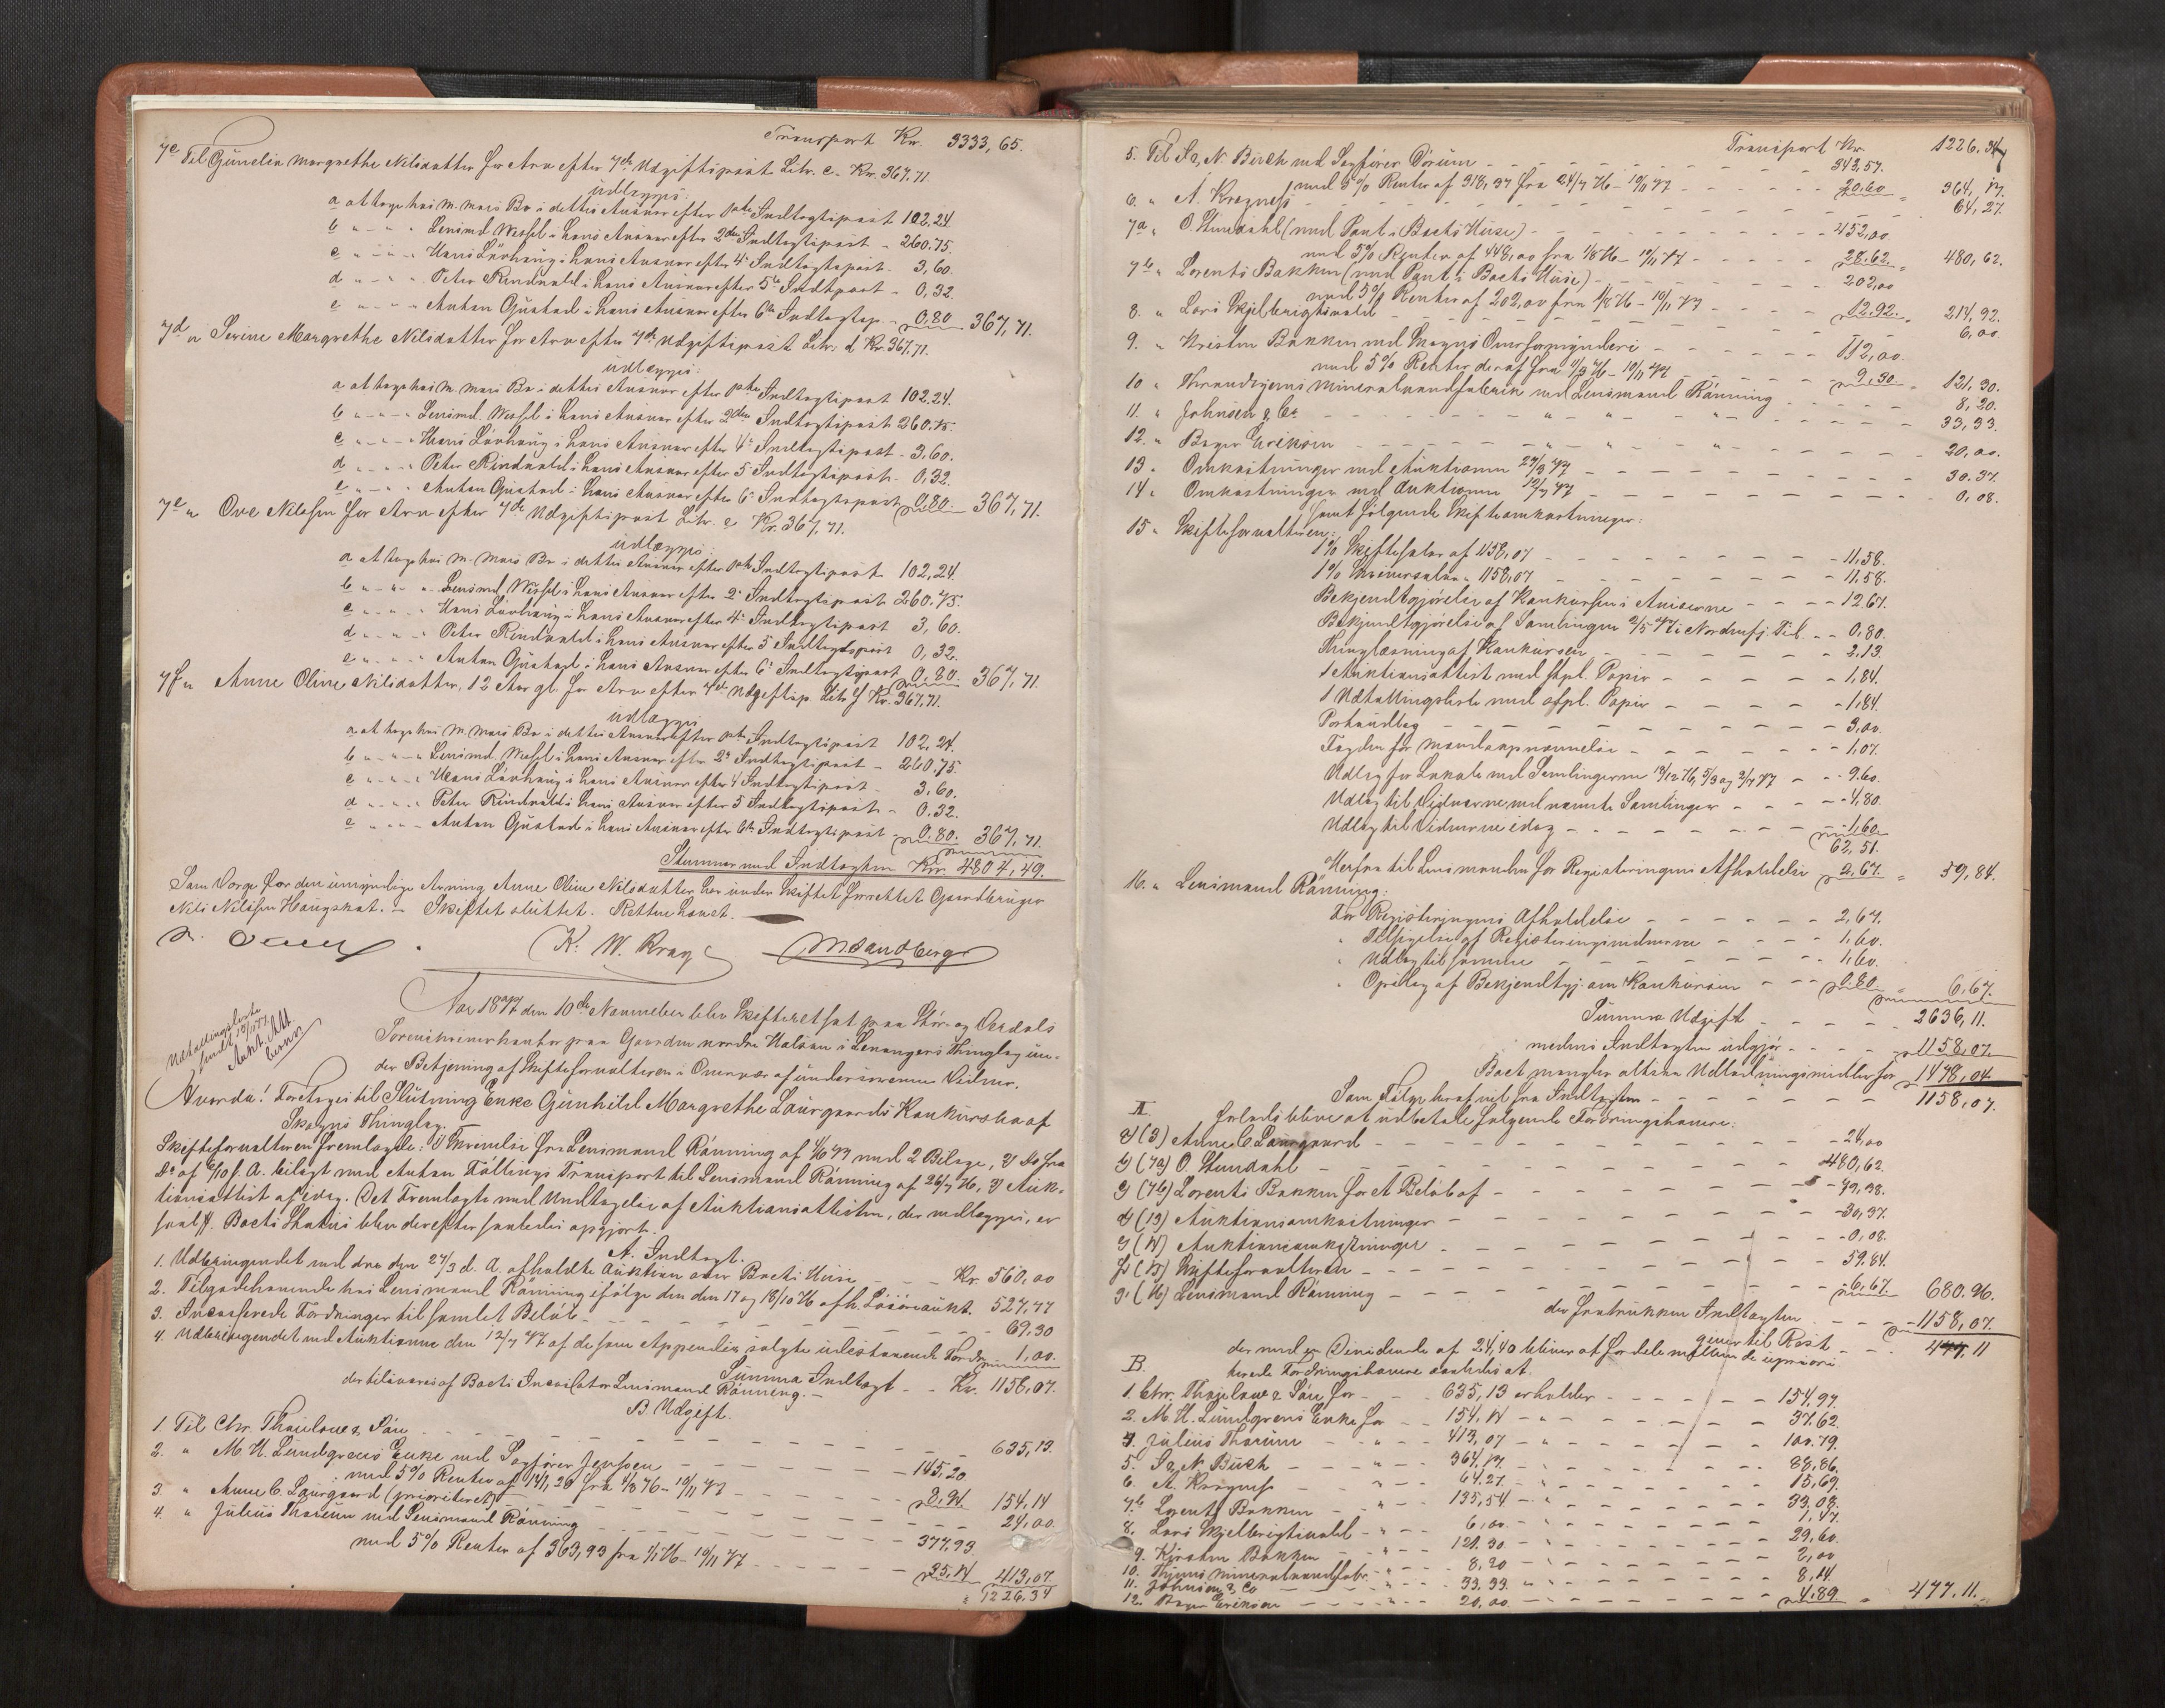 Transport Kr. 3333,65.
7c Til Gunelia Margrethe Nilsdatter for Arv efter 7de Udgiftspost Litr. c. Kr. 367,71.
udlægges:
a at tage hos M. Moes Bo i dettes Ansvar efter 1ste Indtægtspost 102,24
b " " " Lensmd. Wessel i hans Ansvar efter 2den Indtægtspost - 260.75.
c " " " Hans Lövhaug i hans Ansvar efter 4 Indtægtspost - 3,60.
d " " " Peter Rindvold i hans Ansvar efter 5te Indtpost - 0,32.
e " " " Anton Gustad i hans Ansvar efter 6te Indtægtsp - 0.80 367,71.
7d " Serine Margrethe Nilsdatter for Arv efter 7de Udgiftspost Litr. d Kr. 367,71.
udlægges:
a at tage hos M. Moes Bo i dettes Ansvar efter 1ste Indtægtspost 102.24.
b " " " Lensmd. Wessel i hans Ansvar efter 2den Indtægtspost 260.75.
c " " " Hans Lövhaug i hans Ansvar efter 4 Indtægtspost - 3,60.
d " " " Peter Rindvold i hans Ansvar efter 5 Indtægtspost - 0,32.
e " " " Anton Gustad i hans Ansvar efter 6 Indtægtspost 0.80 367,71.
7e " Ove Nilssen for Arv efter 7de Udgiftspost Litr. e Kr. 367,71.
udlægges:
a at tage hos M. Moes Bo i dettes Ansvar efter 1ste Indtægtspost 102,24.
b " " " Lensmd. Wessel i hans Ansvar efter 2 Indtægtspost 260.75.
c " " " Hans Lövhaug i hans Ansvar efter 4 Indtægtspost 3,60.
d " " " Peter Rindvold i hans Ansvar efter 5 Indtægtspost 0,32.
e " " " Anton Gustad i hans Ansvar efter 6 Indtægtspost 0.80. 367,71.
7f " Anne Oline Nilsdatter, 12 Aar gl. for Arv efter 7de Udgiftsp. Litr. f Kr. 367,71.
udlægges
a at tage hos M. Moes Bo i dettes Ansvar efter 1ste Indtægtspost 102,24.
b " " " Lensmd. Wessel i hans Ansvar efter 2 Indtægtspost - 260,75.
c " " " Hans Lövhaug i hans Ansvar efter 4 Indtægtspost - 3.60.
d " " " Peter Rindvold i hans Ansvar efter 5 Indtægtspost - 0,32.
e " " " Anton Gustad i hans Ansvar efter 6te Indtægtspost - 0.80. 367,71.
Stemmer med Indtægten Kr. 4804,49.
Som Værge for den umyndige Arving Anne Oline Nilsdatter har under Skiftet forrettet Gaardbruger
Nils Nilssen Haugskot. - Skiftet sluttet. Retten hævet.
K. W. Krag M. Sandberg
Udtallingsliste
sendt 15/11 77.
Aukt. Att.
beror
Aar 1877 den 10de November blev Skifteret sat paa Stör- og Værdals
Sorenskriverkontor paa Gaarden nordre Halsan i Levangers Thinglag un-
der Betjening af Skifteforvalteren i Overvær af underskrevne Vidner.
Hvorda: Foretoges til Slutning Enke Gunhild Margrethe Laurgaards Konkursbo af
Skogns Thinglag.
Skifteforvalteren fremlagde: 1) Skrivelse fra Lensmand Rönning af 1/6 77 med 2 Bilage, 2) do fra
do af 6/10 f. A. bilagt med Anton Föllings Transport til Lensmand Rönning af 26/7 76, 3) Auk-
tionsattest af idag. Det Fremlagte med Undtagelse af Auktionsattesten, der vedlægges, er
saalt. Boets Status blev derefter saaledes opgjort.
A. Indtægt.
1. Udbringendet ved den den 27/3 d. A. afholdte Auktion over Boets Huse - - - Kr. 560,00
2. Tilgodehavende hos Lensmand Rönning ifölge den den 17 og 18/10 76 afh. Lösöreaukt. 527,77
3. Incasserede Fordringer til samlet Belöb - - - 69,30
4. Udbringendet ved Auktionen den 12/7 77 af de som Appendix solgte udestaaende Fordr. 1,00.
Summa Indtægt - - Kr. 1158,07.
der tilsvares af Boets Incassator Lensmand Rönning. -
B. Udgift.
1. Til Chr. Thaulow & Sön - - - 635,13.
2. " M. H. Lundgreens Enke ved Sagförer Jenssen - - - 145,20
med 5% Renter af 141,20 fra 4/8 76 - 10/11 77 - - - 8.94 154,14
3. " Anne C. Laurgaard (prioriteret) - - - 24,00.
4. " Julius Thorum ved Lensmand Rönning - - - 377.93
med 5% Renter af 363,93 fra 1/1 76 - 10/11 77 - - - 35.14 413,07.
1226,34
Transport Kr. 1226.34
5. Til Sr. N. Birch ved Sagförer Dörum - - - 343,57.
med 5% Renter af 318,37 fra 24/7 76 - 10/11 77 - - - 20.60 364,17.
6. " A. Kragness - - - 64,27.
7a " O. Stendahl (med Pant i Boets Huse) - - - 452,00.
med 5% Renter af 448,00 fra 1/8 76 - 10/11 77 - - - 28.62. 480,62.
7b " Lorents Bakken (med Pant i Boets Huse) - - - 202,00
med 5% Renter af 202,00 fra 1/8 76 - 10/11 77 - - - 12.92. 214,92.
8. " Lars Skjelbrigtvold - - - 6,00.
9. " Kristen Bakken ved Skogns Overformynderi - - - 112,00.
med 5% Renter deraf fra 11/3 76 - 10/11 77 - - - 9,30. 121,30.
10 " Throndhjems Mineralvandfabrik ved Lensmand Rönning - - - 8,20.
11. " Johnsen & Co " " " - - - 33,33.
12. " Bager Eriksen " " " - - - 20,00.
13. Omkostninger ved Auktionen 27/3 77 - - - 30.37.
14. Omkostninger ved Auktionen 12/7 77 - - - 0,08.
samt fölgende Skifteomkostninger:
15 " Skifteforvalteren:
1% Skiftesalær af 1158,07 - - - 11,58.
1% Skriversalær " 1158,07 - - - 11,58.
Bekjendtgjörelse af Konkursen i Aviserne - - - 12.67.
Bekjendtgjörelse af Samlingen 2/5 77 i Nordenfj. Tid. - - 0,80.
Thinglæsning af Konkursen - - - 2,13.
1 Auktionsattest med stpl. Papir - - - 1,84.
1 Udtallingsliste med stpl. Papir - - - 1,84.
Portoudlæg - - - 3,00.
Fogden for Mandsopnævnelse - - - 1,07.
Udlæg for Lokale ved Samlingerne 19/12 76, 5/3 og 2/7 77 - - - 9.60.
Udlæg til Vidnerne ved nævnte Samlinger - - - 4,80.
Udlæg til Vidnerne idag - - - 1,60.
62,51.
Herfra til Lensmanden for Registreringens Afholdelse 2.67. 59,84.
16. " Lensmand Rönning:
For Registreringens Afholdelse - - - 2,67.
" Tilsigelse af Registreringsvidnerne - - - 1,60.
" Udlæg til samme - - - 1,60.
" Opslag af Bekjendtgj. om Konkursen - - - 0.80 6,67.
Summa Udgift - - - 2636,11.
medens Indtægten udgjör - - - 1158,07.
Boet mangler altsaa Udlodningsmidler for 1478,04
Som Fölge heraf vil fra Indtægten - - - 1158,07.
A. forlods blive at udbetale fölgende Fordringshavere:
a) (3) Anne C. Laurgaard - - - 24,00
b) (7a) O. Stendahl - - - 480,62.
c) (7b) Lorents Bakken for et Belöb af - - - 79,38.
d) (13) Auktionsomkostninger - - - 30,37.
e) (14) Auktionsomkostninger - - - 0,08.
f) (15) Skifteforvalteren - - - 59.84.
g) (16) Lensmand Rönning - - - 6,67. 680.96.
der fratrukken Indtægten - - - 1158,07.
giver til Rest - - - 477,11
der med en Dividende af 24,40 bliver at fordele mellem de upriori-
B. terede Fordringshavere saaledes at.
1. Chr. Thaulow & Sön for - - 635,13 erholder - - - 154,97.
2. M. H. Lundgreens Enke for - - 154,14 - " - - - 37.62.
4. Julius Thorum - " - 413,07 - " - - - 100.79.
5. Sr. N. Birch - " - 364,17. - - - 88,86.
6. A. Kragness - " - 64.27 - - - 15,69.
7b. Lorents Bakken - " - 135,54 - " - - - 33,08.
8. Lars Skjelbrigtvold - " - 6,00. - - - 1,47.
9. Kirsten Bakken - " - 121.30 - - - 29,60.
10. Thjems Mineralvandfabr. - " - 8,20 - - - 2,00
11. Johnsen & Co - " - 33.33. - - - 8,14.
12. Bager Eriksen - " - 20,00. - - - 4.89. 477,11.